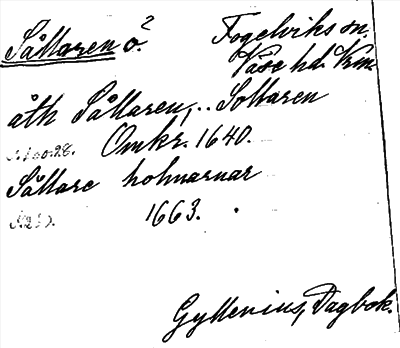 Såttaren ö.² Fogelviks sn.
Väse hd. Vrm.
åth Såttaren, .. Sottaren
Omkr. 1640.
Såttare holmarnar
1663.
Gyllenius, Dagbok.